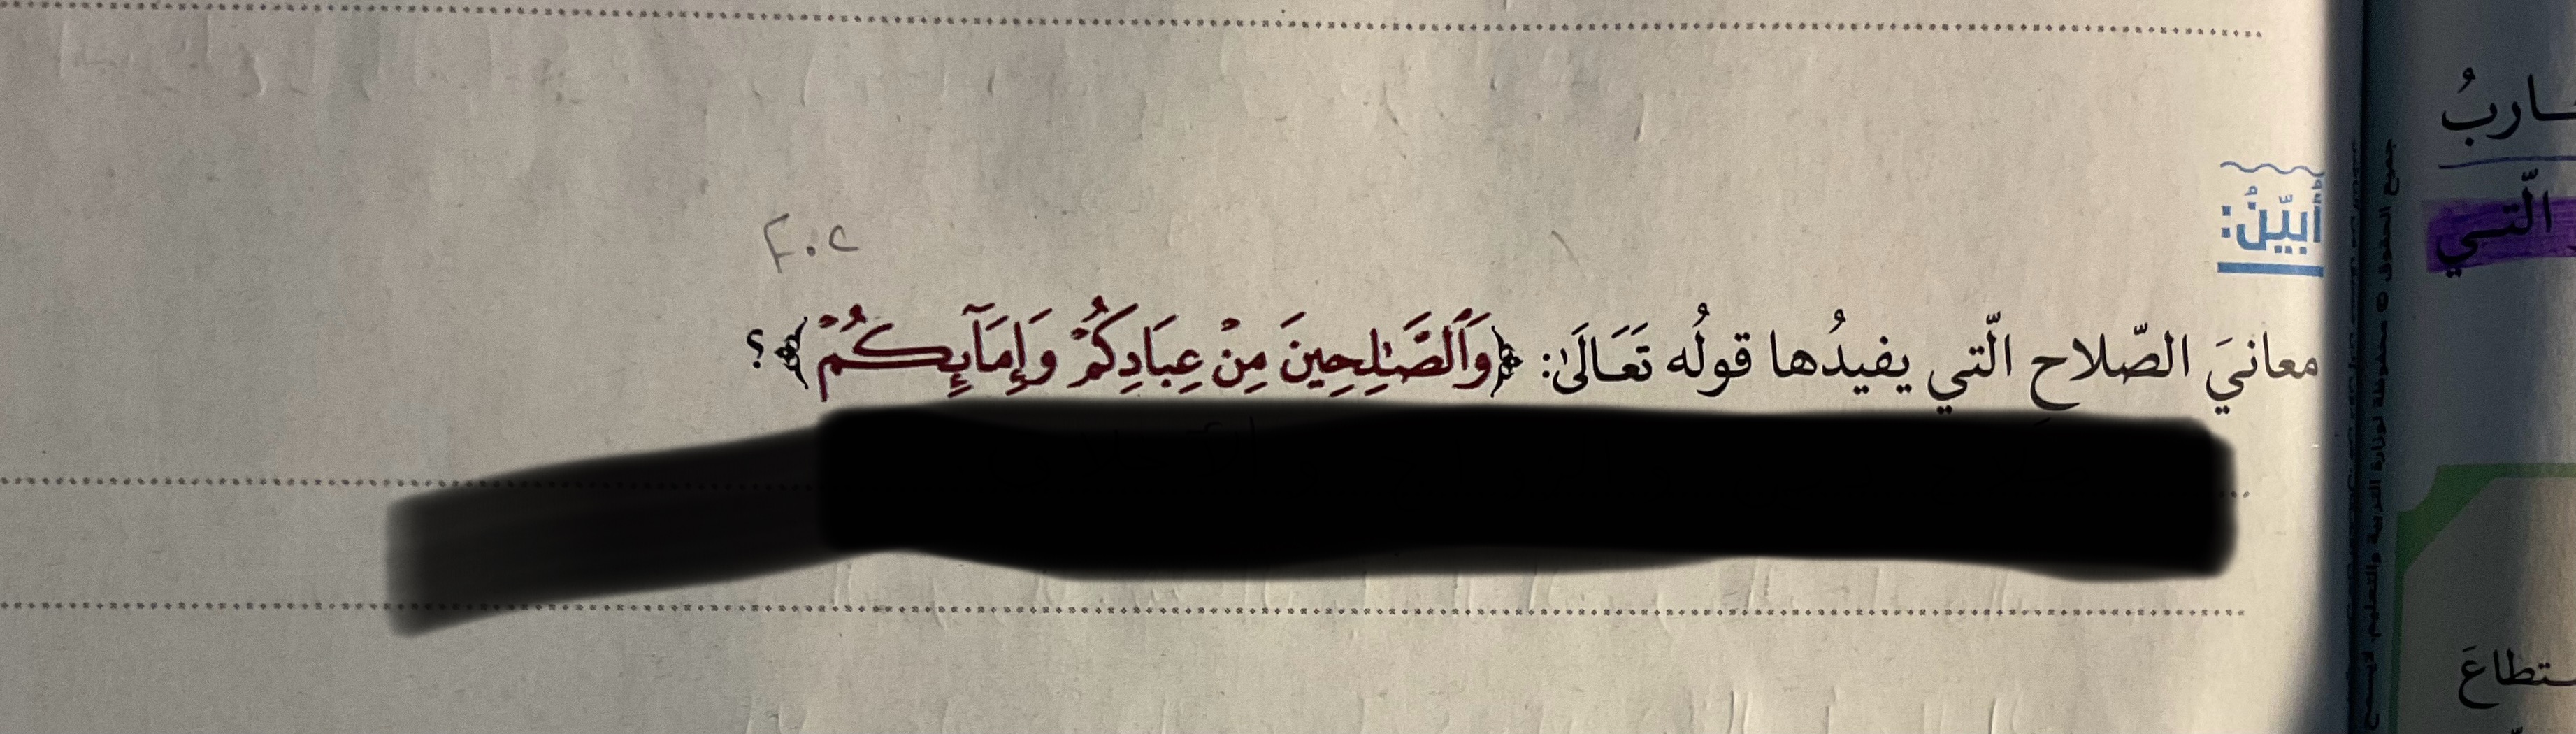 أُبَيِّنُ:
معانيَ الصّلاحِ الّتي يفيدُها قولُه تَعَالَىٰ: ﴿وَٱلصَّٰلِحِينَ مِنْ عِبَادِكُمْ وَإِمَآئِكُمْ﴾؟
ـاربُ
الّتي
جميع الحقوق © محفوظة لوزارة التربية والتعليم
ـتطاعَ